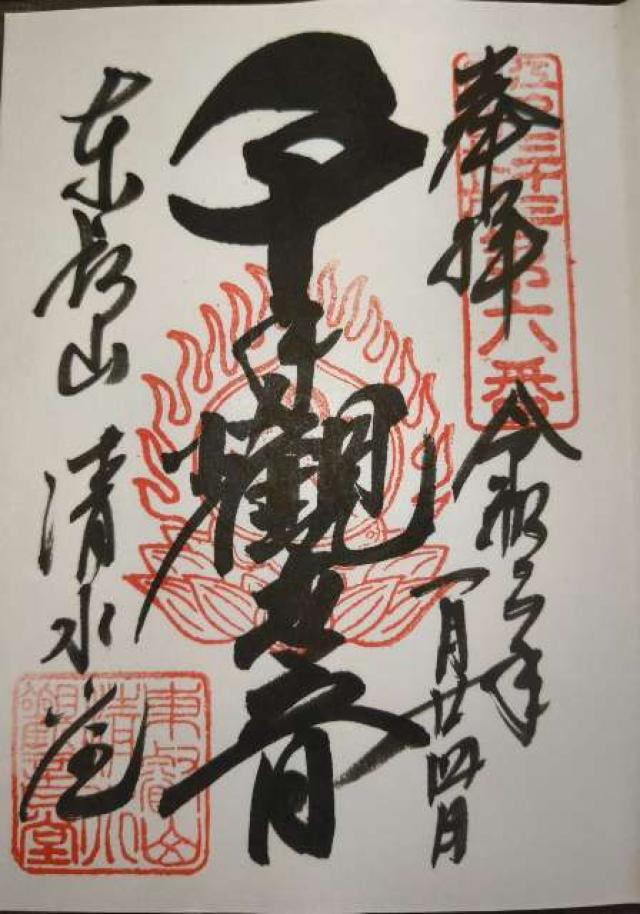 江戸三十三
第六番
奉拝
令和二年
一月廿四日
千手觀世音
東叡山 清水堂
東叡山
清水
觀音堂